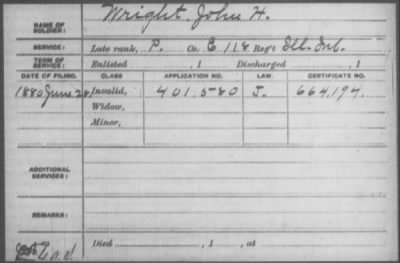 NAME OF SOLDIER: Wright John H.
SERVICE: Late rank, P. Co. E 118 Reg't Ill. Inf.
TERM OF SERVICE: Enlisted , 1 Discharged , 1
DATE OF FILING. CLASS APPLICATION NO. LAW. CERTIFICATE NO.
1880 June 28 Invalid, 401.580 J. 664,194.
Widow,
Minor,
ADDITIONAL SERVICES:
REMARKS:
Died , 1 , at